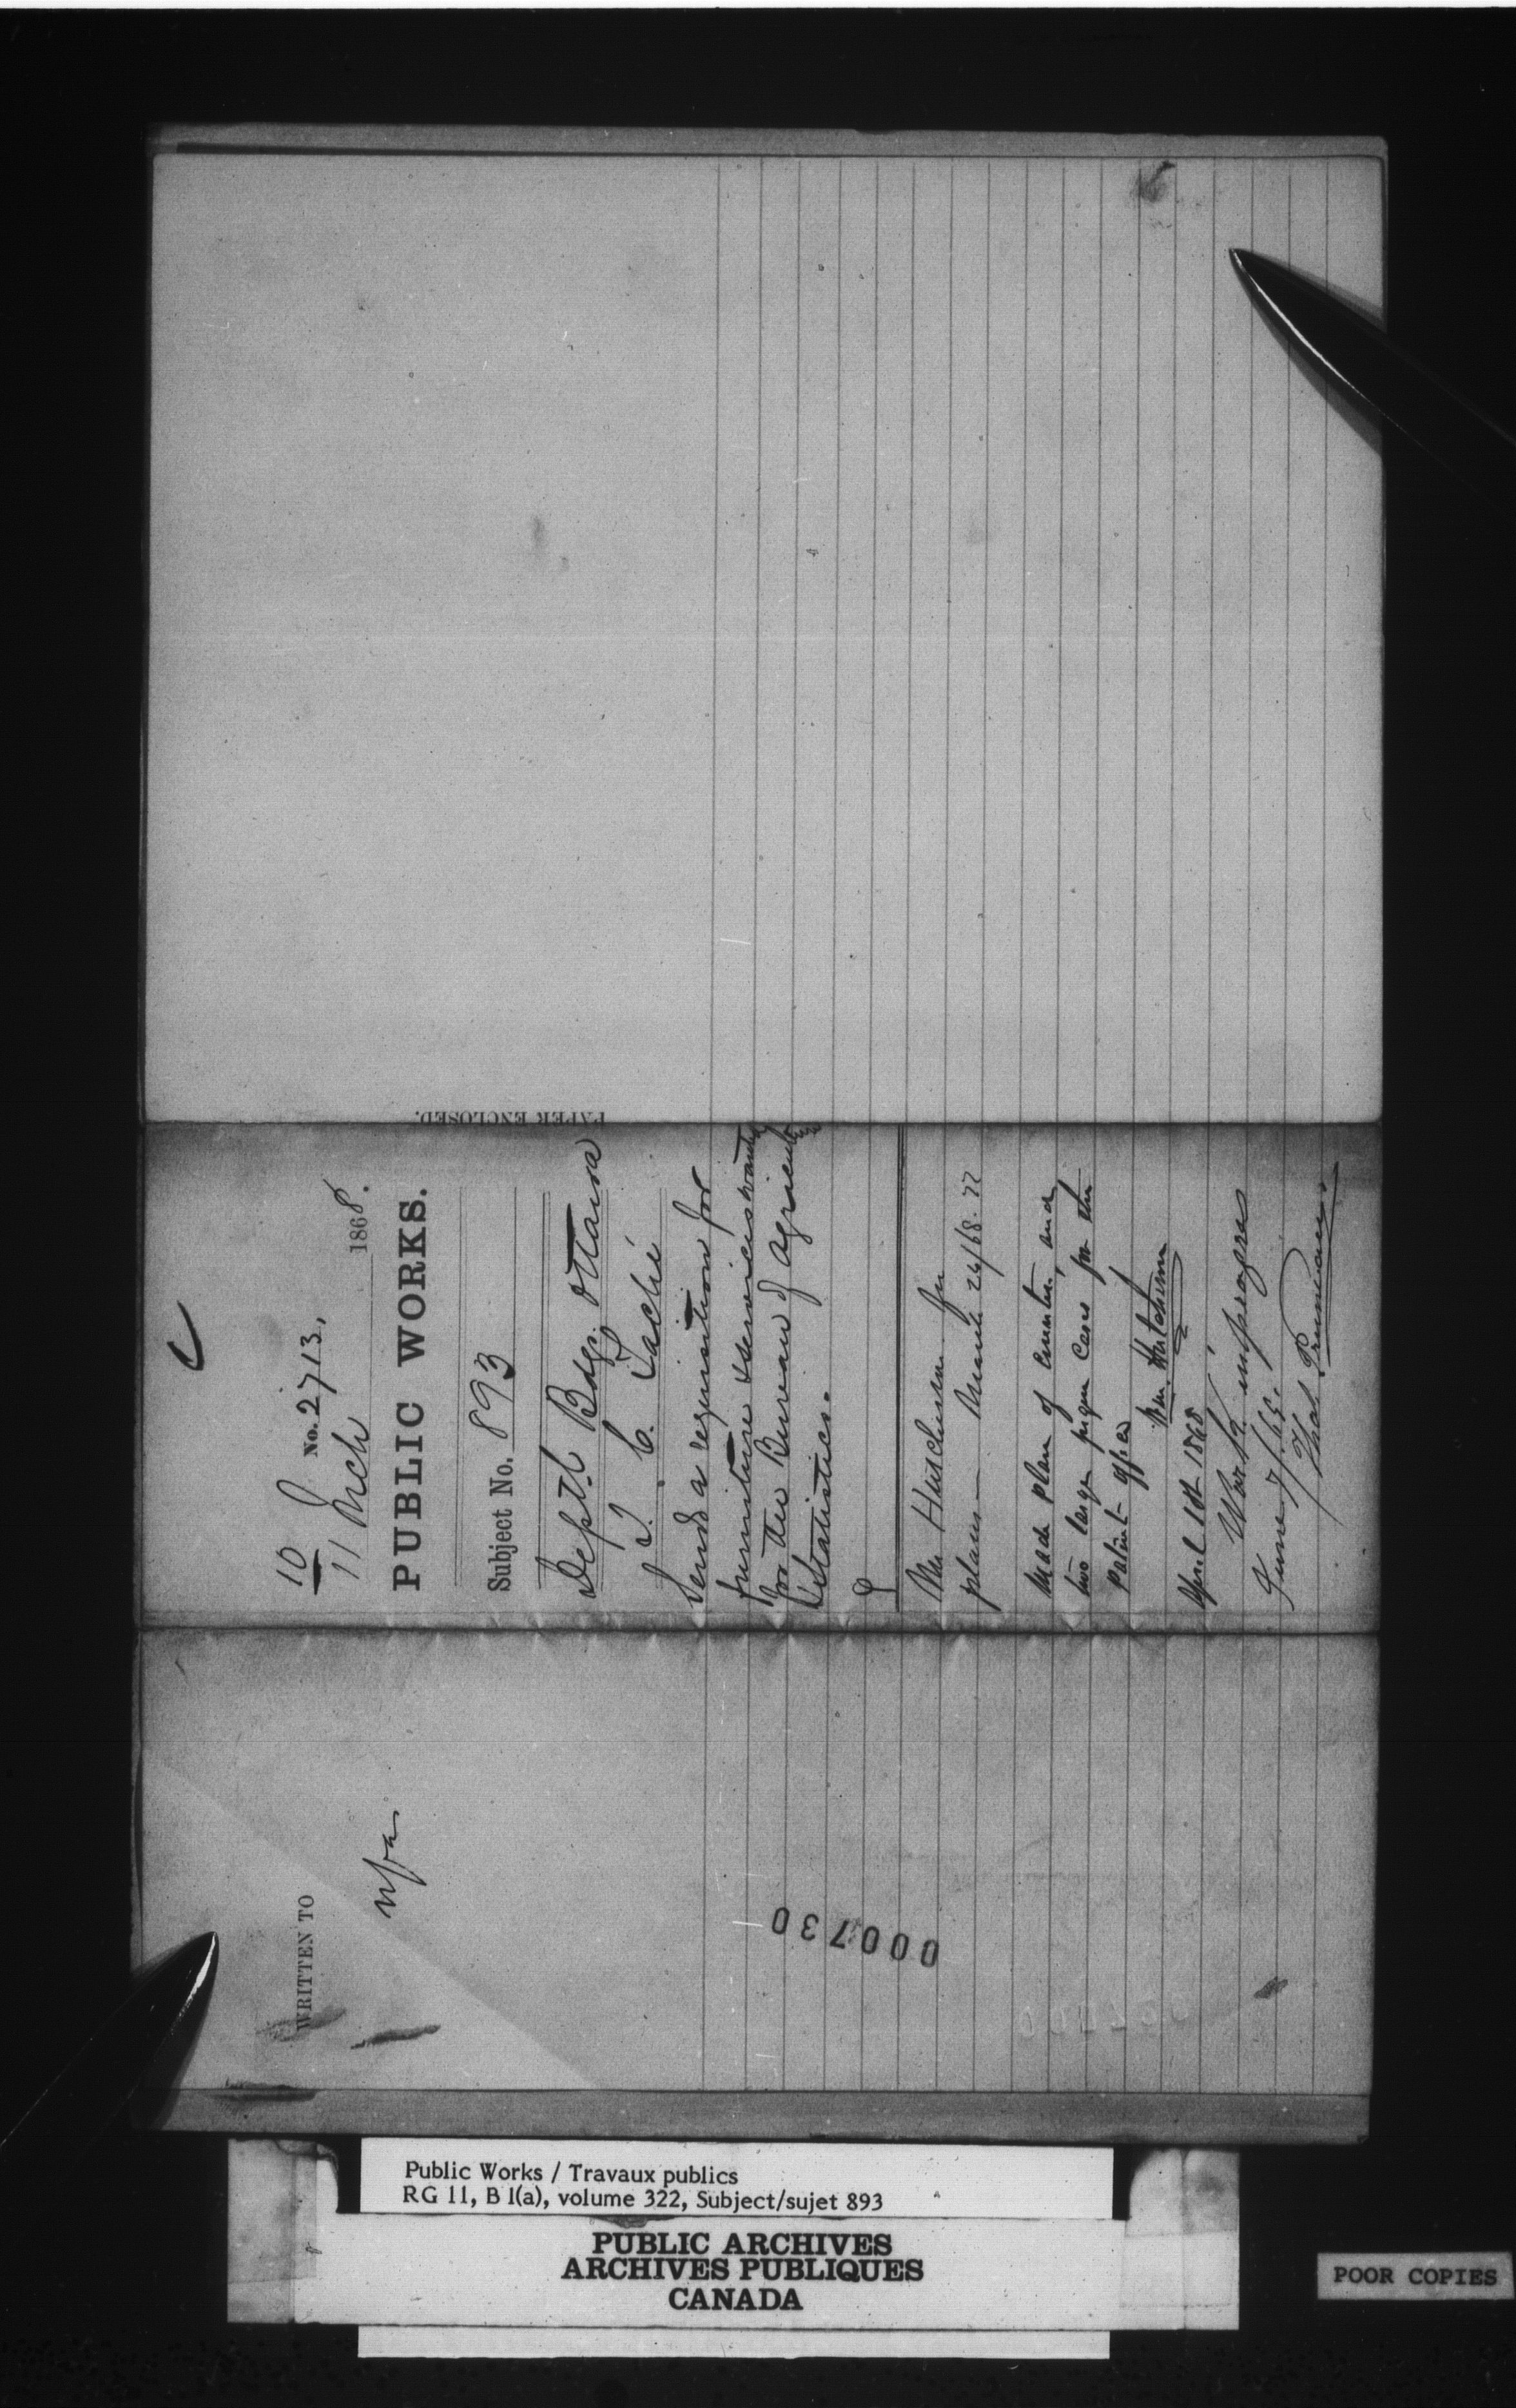 C
10 No. 2713,
11 Mch 1868.
PUBLIC WORKS.
Subject No. 893
Deptl Bdgs. Ottawa
J. C. Taché
Sends a requisition for
furniture & services wanted
for the Bureau of Agriculture
& Statistics.
Mr Hutchison for
plans — March 26/68.
Made plan of counter, and
two large pigeon cases for the
Patent office
Wm. Hutchison
April 1st 1868
Work in progress
June 7/68.
PAPER ENCLOSED.
WRITTEN TO
000730
Public Works / Travaux publics
RG 11, B 1(a), volume 322, Subject/sujet 893
PUBLIC ARCHIVES
ARCHIVES PUBLIQUES
CANADA
POOR COPIES